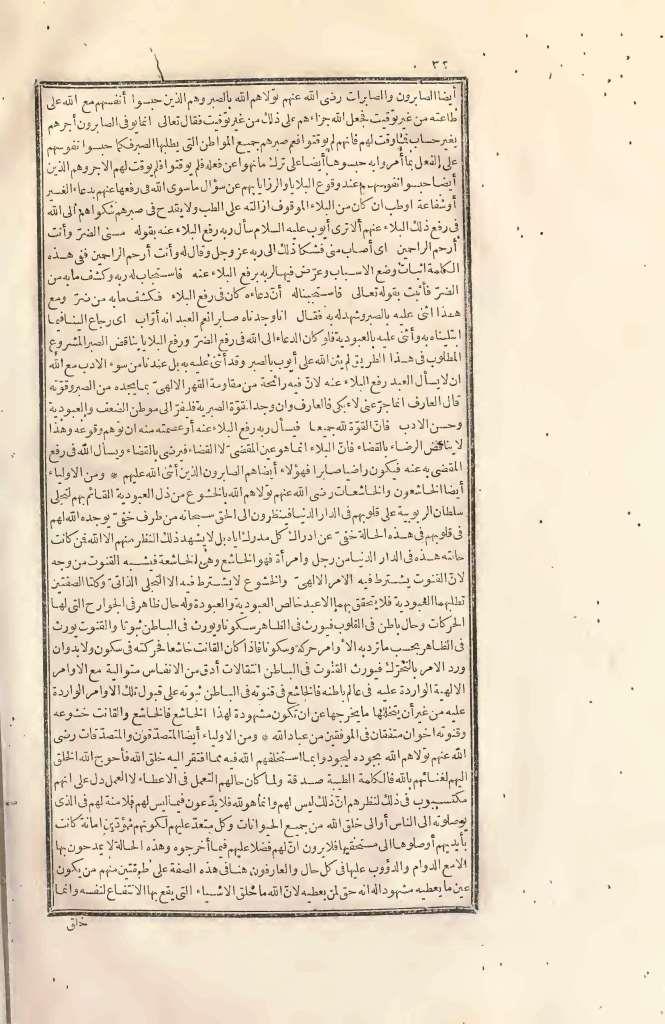 ٣٢
أيضا الصابرون والصابرات رضى الله عنهم تولاهم الله بالصبر وهم الذين حبسوا أنفسهم مع الله على
طاعته من غير توقيت فجعل الله جزاءهم على ذلك من غير توقيت فقال تعالى انما يوفى الصابرون أجرهم
بغير حساب فما وقت لهم فانهم لم يوقتوا فم صبرهم جميع المواطن التى يطلبها الصبر فكما حبسوا نفوسهم
على الفعل بما أمروا به حبسوها أيضا على ترك ما نهوا عن فعله فلم يوقتوا فلم يوقت لهم الاجر وهم الذين
أيضا حبسوا نفوسهم عند وقوع البلايا والرزايا بهم عن سؤال ماسوى الله فى رفعها عنهم بدعاء الغير
أو شفاعة أو طب ان كان من البلاء الموقوف ازالته على الطب ولا يقدح فى صبرهم شكواهم الى الله
فى رفع ذلك البلاء عنهم ألا ترى أيوب عليه السلام سأل ربه رفع البلاء عنه بقوله مسنى الضر وأنت
أرحم الراحمين أى أصاب منى فشكا ذلك الى ربه عز وجل وقال له وأنت أرحم الراحمين ففى هذه
الكلمة اثبات وضع الاسباب وعرض فيها لربه برفع البلاء عنه فاستجاب له ربه وكشف مابه من
الضر فأثبت بقوله تعالى فاستجبنا له أن دعاءه كان فى رفع البلاء فكشف مابه من ضر ومع
هذا اثنى عليه بالصبر وشهد له به فقال انا وجدناه صابرا نعم العبد انه أواب أى رجاع الينا فيما
ابتليناه به وأثنى عليه بالعبودية فلو كان الدعاء الى الله فى رفع الضر ورفع البلايا يناقض الصبر المشروع
المطلوب فى هذا الطريق لم يثن الله على أيوب بالصبر وقد أثنى عليه به بل عندنا من سوء الادب مع الله
ان لا يسأل العبد رفع البلاء عنه لان فيه رائحة من مقاومة القهر الالهى بما يجده من الصبر وقوته
قال العارف انما جوعنى لابكى فالعارف وان وجد القوة الصبرية فليفر الى موطن الضعف والعبودية
وحسن الادب فان القوة لله جميعا فيسأل ربه رفع البلاء عنه أو عصمته منه ان توهم وقوعه وهذا
لا يناقض الرضاء بالقضاء فان البلاء انما هو عين المقضى لا القضاء فيرضى بالقضاء ويسأل الله فى رفع
المقضى به عنه فيكون راضيا صابرا فهؤلاء أيضاهم الصابرون الذين أثنى الله عليهم * ومن الاولياء
أيضا الخاشعون والخاشعات رضى الله عنهم تولاهم الله بالخشوع من ذل العبودية القائم بهم لتجلى
سلطان الربوبية على قلوبهم فى الدار الدنيا فينظرون الى الحق سبحانه من طرف خفى يوجده الله لهم
فى قلوبهم فى هذه الحالة خفى عن ادراك كل مدرك اياه بل لا يشهد ذلك النظر منهم الا الله فمن كانت
حالته هذه فى الدار الدنيا من رجل وامرأة فهو الخاشع وهى الخاشعة فيشبه القنوت من وجه
لان القنوت يشترط فيه الامر الالهى والخشوع لا يشترط فيه الا التجلى الذاتى وكلتا الصفتين
تطلبهما العبودية فلا يتحقق بهما الا عبد خالص العبودية والعبودة وله حال ظاهر فى الجوارح التى لها
الحركات وحال باطن فى القلوب فيورث فى الظاهر سكونا ويورث فى الباطن ثبوتا والقنوت يورث
فى الظاهر بحسب ما ترد به الاوامر حركة وسكونا فاذا كان القانت خاشعا فحركته فى سكون ولا بد وان
ورد الامر بالتحرك فيورث القنوت فى الباطن انتقالات أدق من الانفاس متوالية مع الاوامر
الالهية الواردة عليه فى عالم باطنه فالخاشع فى قنوته فى الباطن ثبوته على قبول تلك الاوامر الواردة
عليه من غير أن يتخللها ما يخرجها عن ان تكون مشهودة لهذا الخاشع فالخاشع والقانت خشوعه
وقنوته اخوان متفقان فى الموفقين من عباد الله * ومن الاولياء أيضا المتصدقون والمتصدقات رضى
الله عنهم تولاهم الله بجوده ليجودوا بما استخلفهم الله فيه مما افتقر اليه خلق الله فأحوج الله الخلق
اليهم لغنائهم بالله فالكلمة الطيبة صدقة ولما كان حالهم التعمل فى الاعطاء لا العمل دل على انهم
مكتسبون فى ذلك لنظرهم ان ذلك ليس لهم وانما هو لله فلا يدعون فيما ليس لهم فلا منة لهم فى الذى
يوصلونه الى الناس أو الى خلق الله من جميع الحيوانات وكل متغذ عليهم لكونهم مؤدين أمانة كانت
بأيديهم أوصلوها الى مستحقيها فلا يرون ان لهم فضلا عليهم فيما أخرجوه وهذه الحالة لا يمدحون بها
الا مع الدوام والدؤوب عليها فى كل حال والعارفون هنا فى هذه الصفة على طبقتين منهم من يكون
عين ما يعطيه مشهودا له انه حق لمن يعطيه لان الله ما خلق الاشياء التى يقع بها الانتفاع لنفسه وانما
خلق